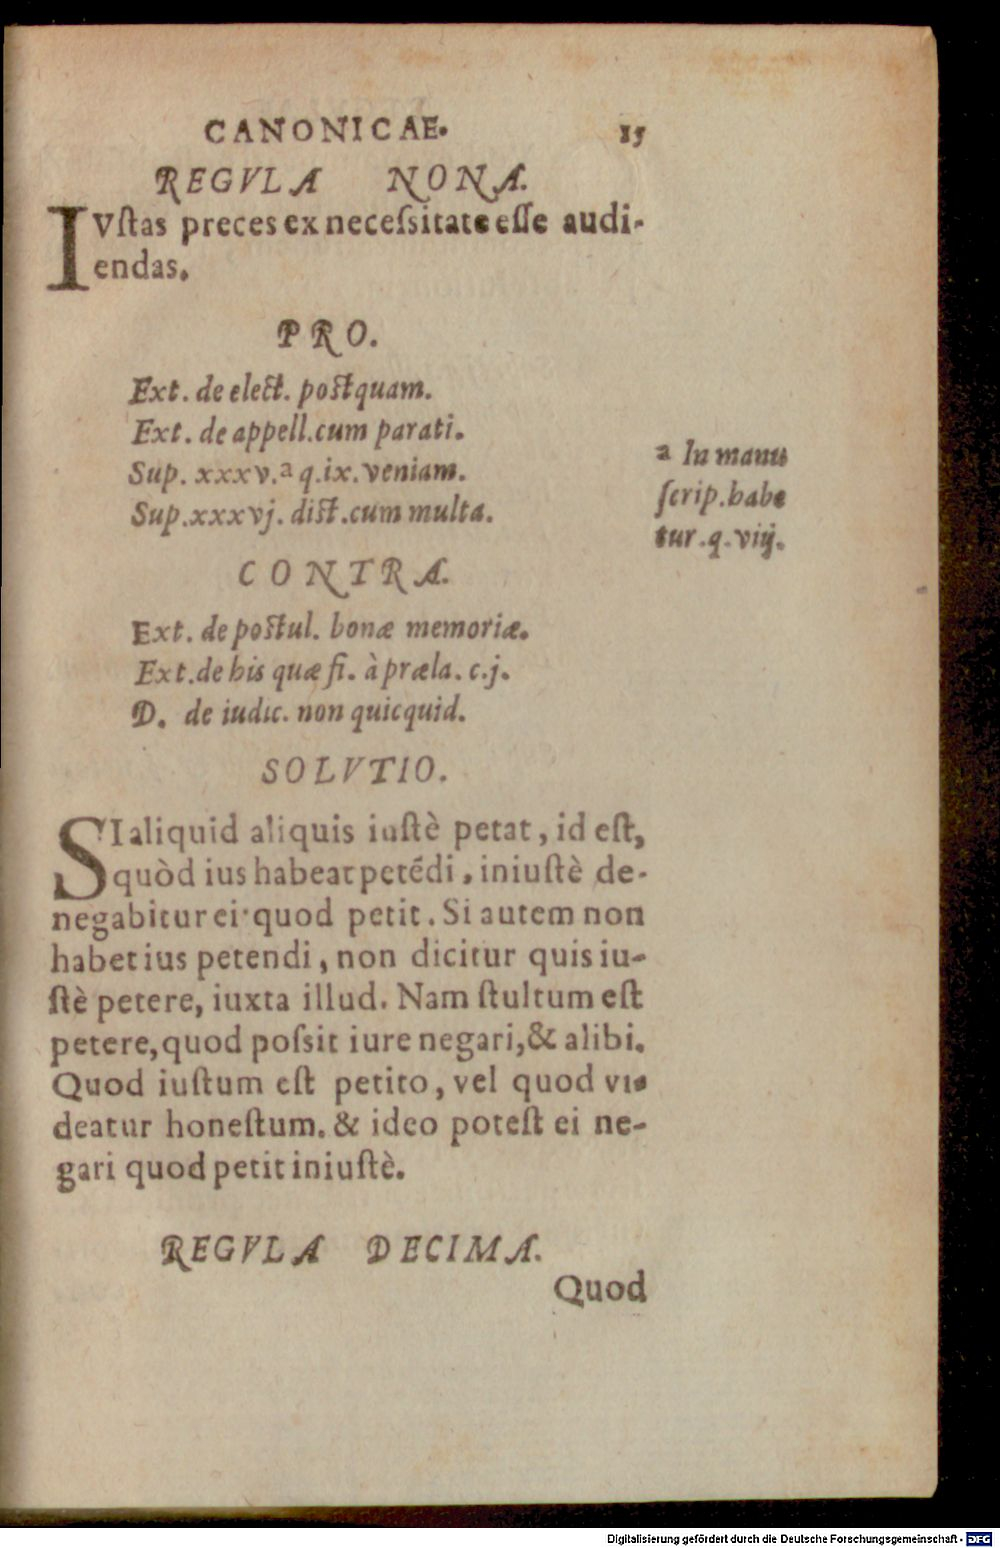 CANONICAE. 15
REGVLA NONA.
IVſtas preces ex neceſsitate eſſe audi-
endas.
PRO.
Ext. de elect. poſtquam.
Ext. de appell. cum parati.
Sup. xxxv.ª q. ix. veniam.
Sup. xxxvj. diſt. cum multa.
ª In manu
ſcrip. habe
tur. q. viij.
CONTRA.
Ext. de poſtul. bonæ memoriæ.
Ext. de his quæ fi. à præla. c. j.
D. de iudic. non quicquid.
SOLVTIO.
SI aliquid aliquis iuſtè petat, id eſt,
quòd ius habeat petẽdi, iniuſtè de-
negabitur ei quod petit. Si autem non
habet ius petendi, non dicitur quis iu-
ſtè petere, iuxta illud. Nam ſtultum eſt
petere, quod poſsit iure negari, & alibi.
Quod iuſtum eſt petito, vel quod vi-
deatur honeſtum. & ideo poteſt ei ne-
gari quod petit iniuſtè.
REGVLA DECIMA.
Quod
Digitalisierung gefördert durch die Deutsche Forschungsgemeinschaft - DFG